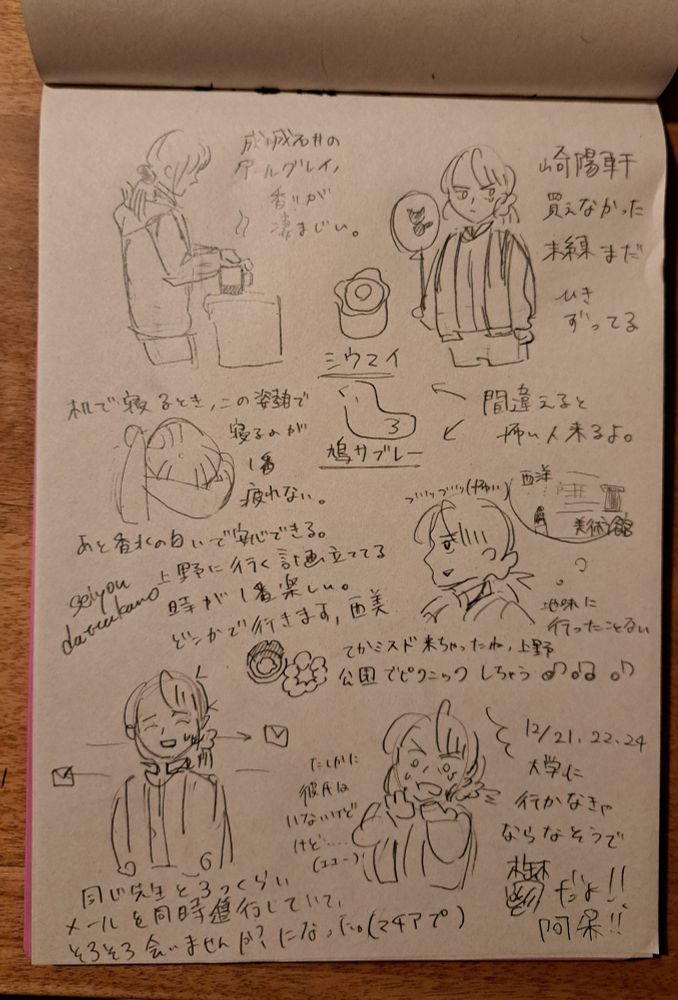 成城石井の
アールグレイ、
香りが
凄まじい。
崎陽軒
買えなかった
未練まだ
ひき
ずってる
シウマイ
机で寝るとき、この姿勢で
寝るのが
1番
疲れない。
あと香水の匂いで安心できる。
3
鳩サブレー
間違えると
怖い人来るよ。
seiyou
daisukano
上野に行く計画立ててる
時が1番楽しい。
どっかで行きます、西美
ブツブツ(怖い)
西洋
美術館
地味に
行ったことない
てかミスド来ちゃったね、上野
公園でピクニックしちゃう
たしかに
彼氏は
いないけど
けど……
12/21、22、24
大学に
行かなきゃ
ならなそうで
だよ!!
阿呆!!
同じ先生と3つくらい
メールを同時進行していて、
そろそろ会いませんか?になった。(マチアプ)